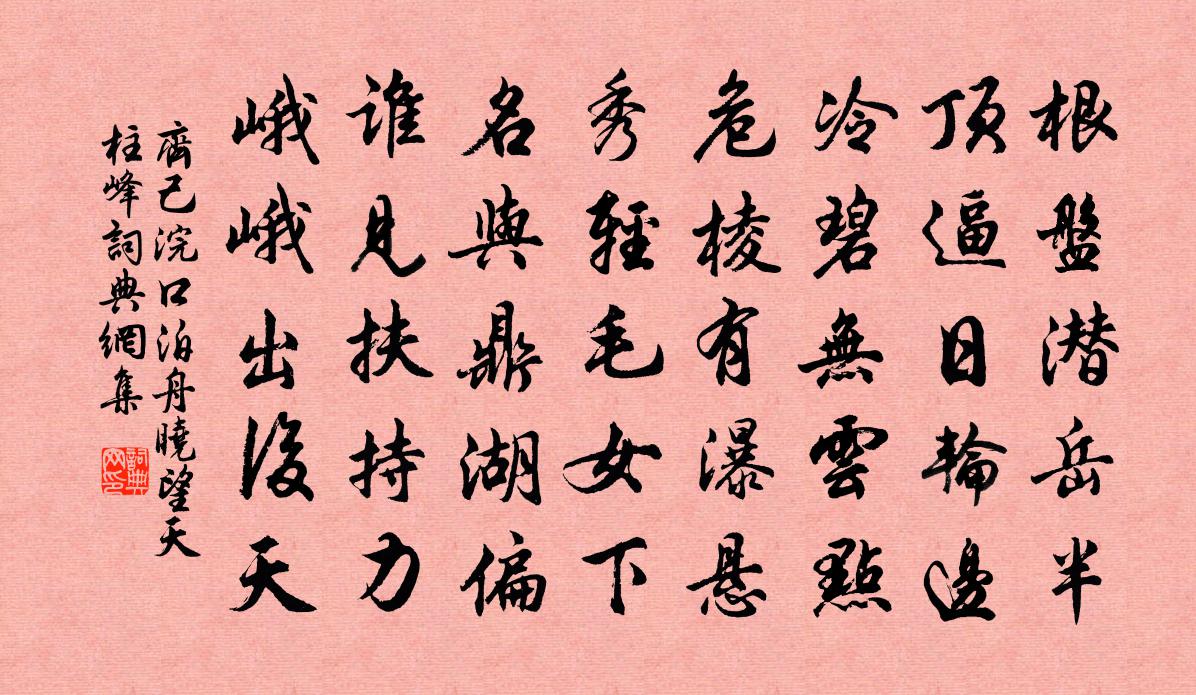 根盤潜岳半
頂逼日輪邊
冷碧無雲點
危棱有瀑懸
秀輕毛女下
名與鼎湖偏
誰見扶持力
峨峨出後天
齊己浣口泊舟曉望天
柱峰詞典網集
詞典
网印